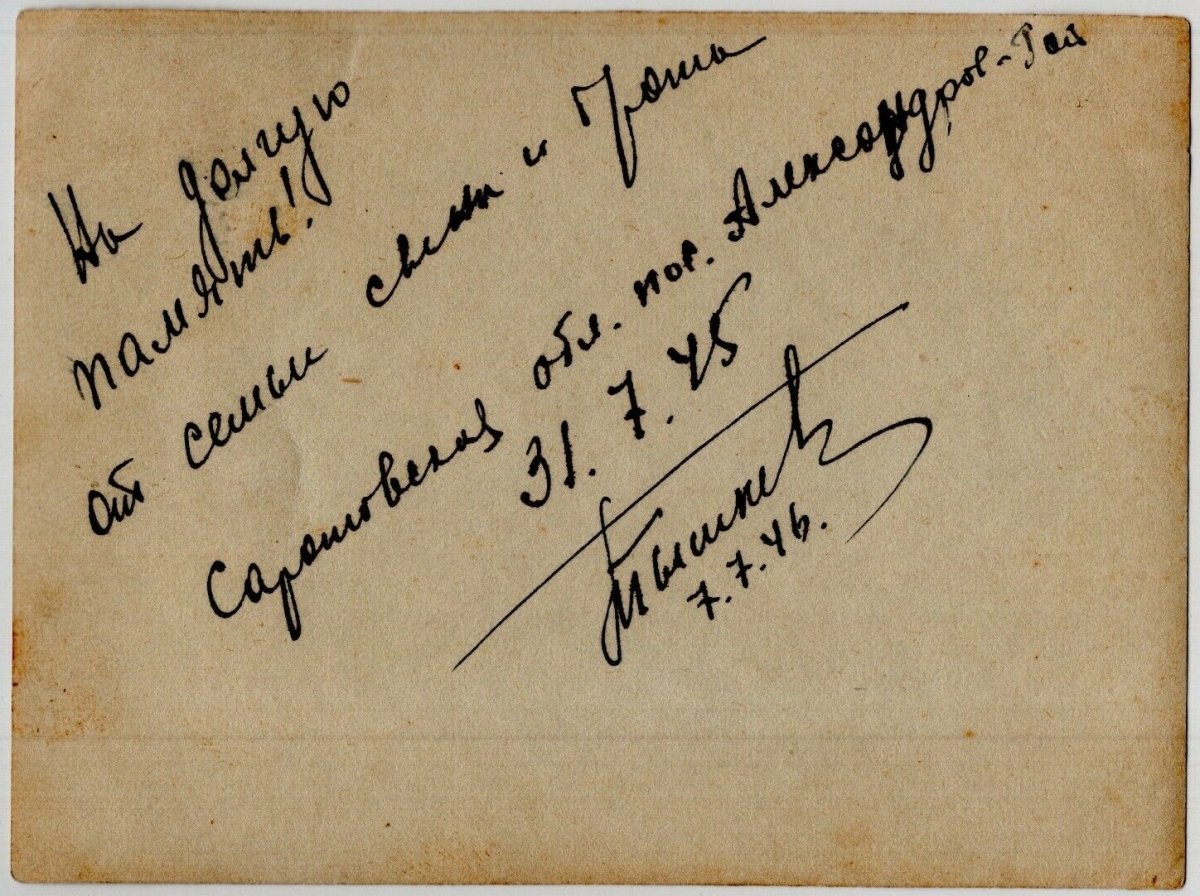 На долгую
память!
от семьи
Саратовская обл. пос. Александров-Гай
31.7.45
7.7.46.